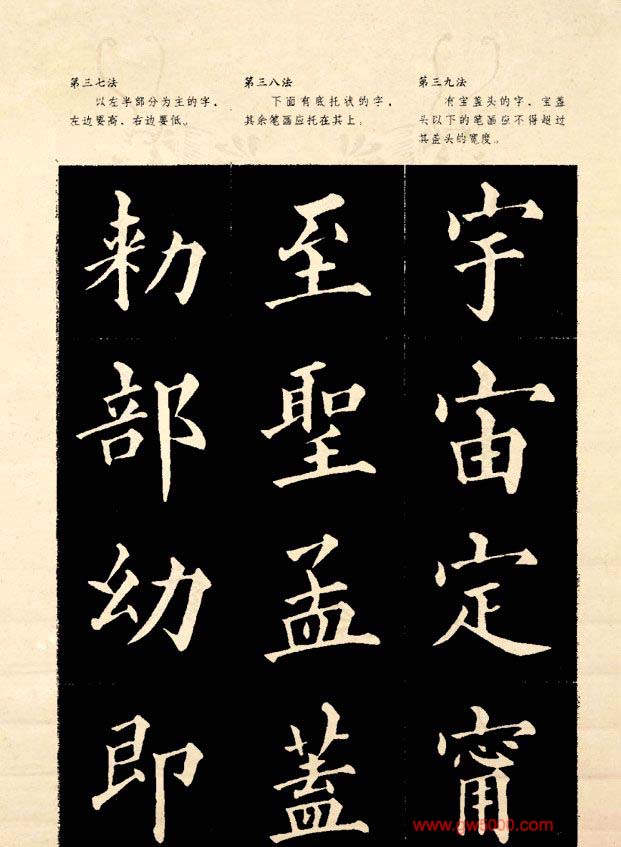 第三七法
以左半部分为主的字，
左边要高、右边要低。
第三八法
下面有底托状的字，
其余笔画应托在其上。
第三九法
有宝盖头的字，宝盖
头以下的笔画应不得超过
其盖头的宽度。
勑 至 宇
部 聖 宙
幼 孟 定
即 蓋 甯
www.gw5000.com